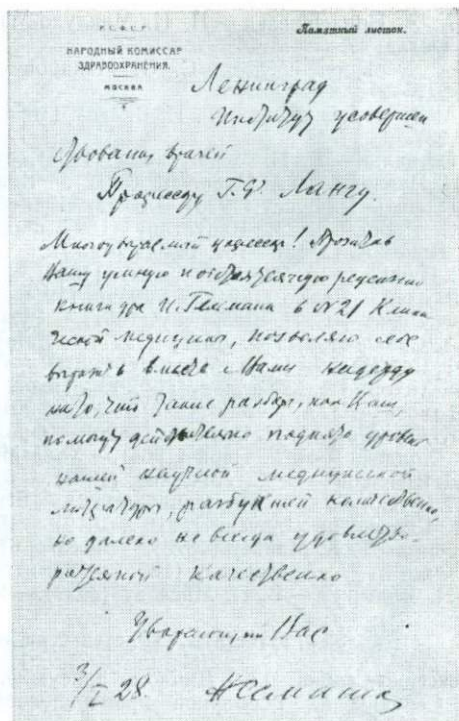 Р.С.Ф.С.Р.
Памятный листок.
НАРОДНЫЙ КОМИССАР
ЗДРАВООХРАНЕНИЯ.
МОСКВА
Ленинград
Институт усовершен
ствования врачей
Профессору Г.Ф. Лангу.
Многоуважаемый профессор! Прочитав
Вашу умную и обстоятельную рецензию
книги д-ра И. Гельмана в №21 Клини
ческой медицины, позволяю себе
выразить вместе с Вами надежду
на то, что такие разборы, как Ваш,
помогут действительно поднять уровень
нашей научной медицинской
литературы, разбухшей количественно,
но далеко не всегда удовлетво-
рительной качественно
Уважающий Вас
3/I 28 НСемашко